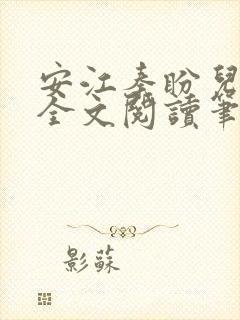 安江秦盼兒
全文閱讀筆
影蘇